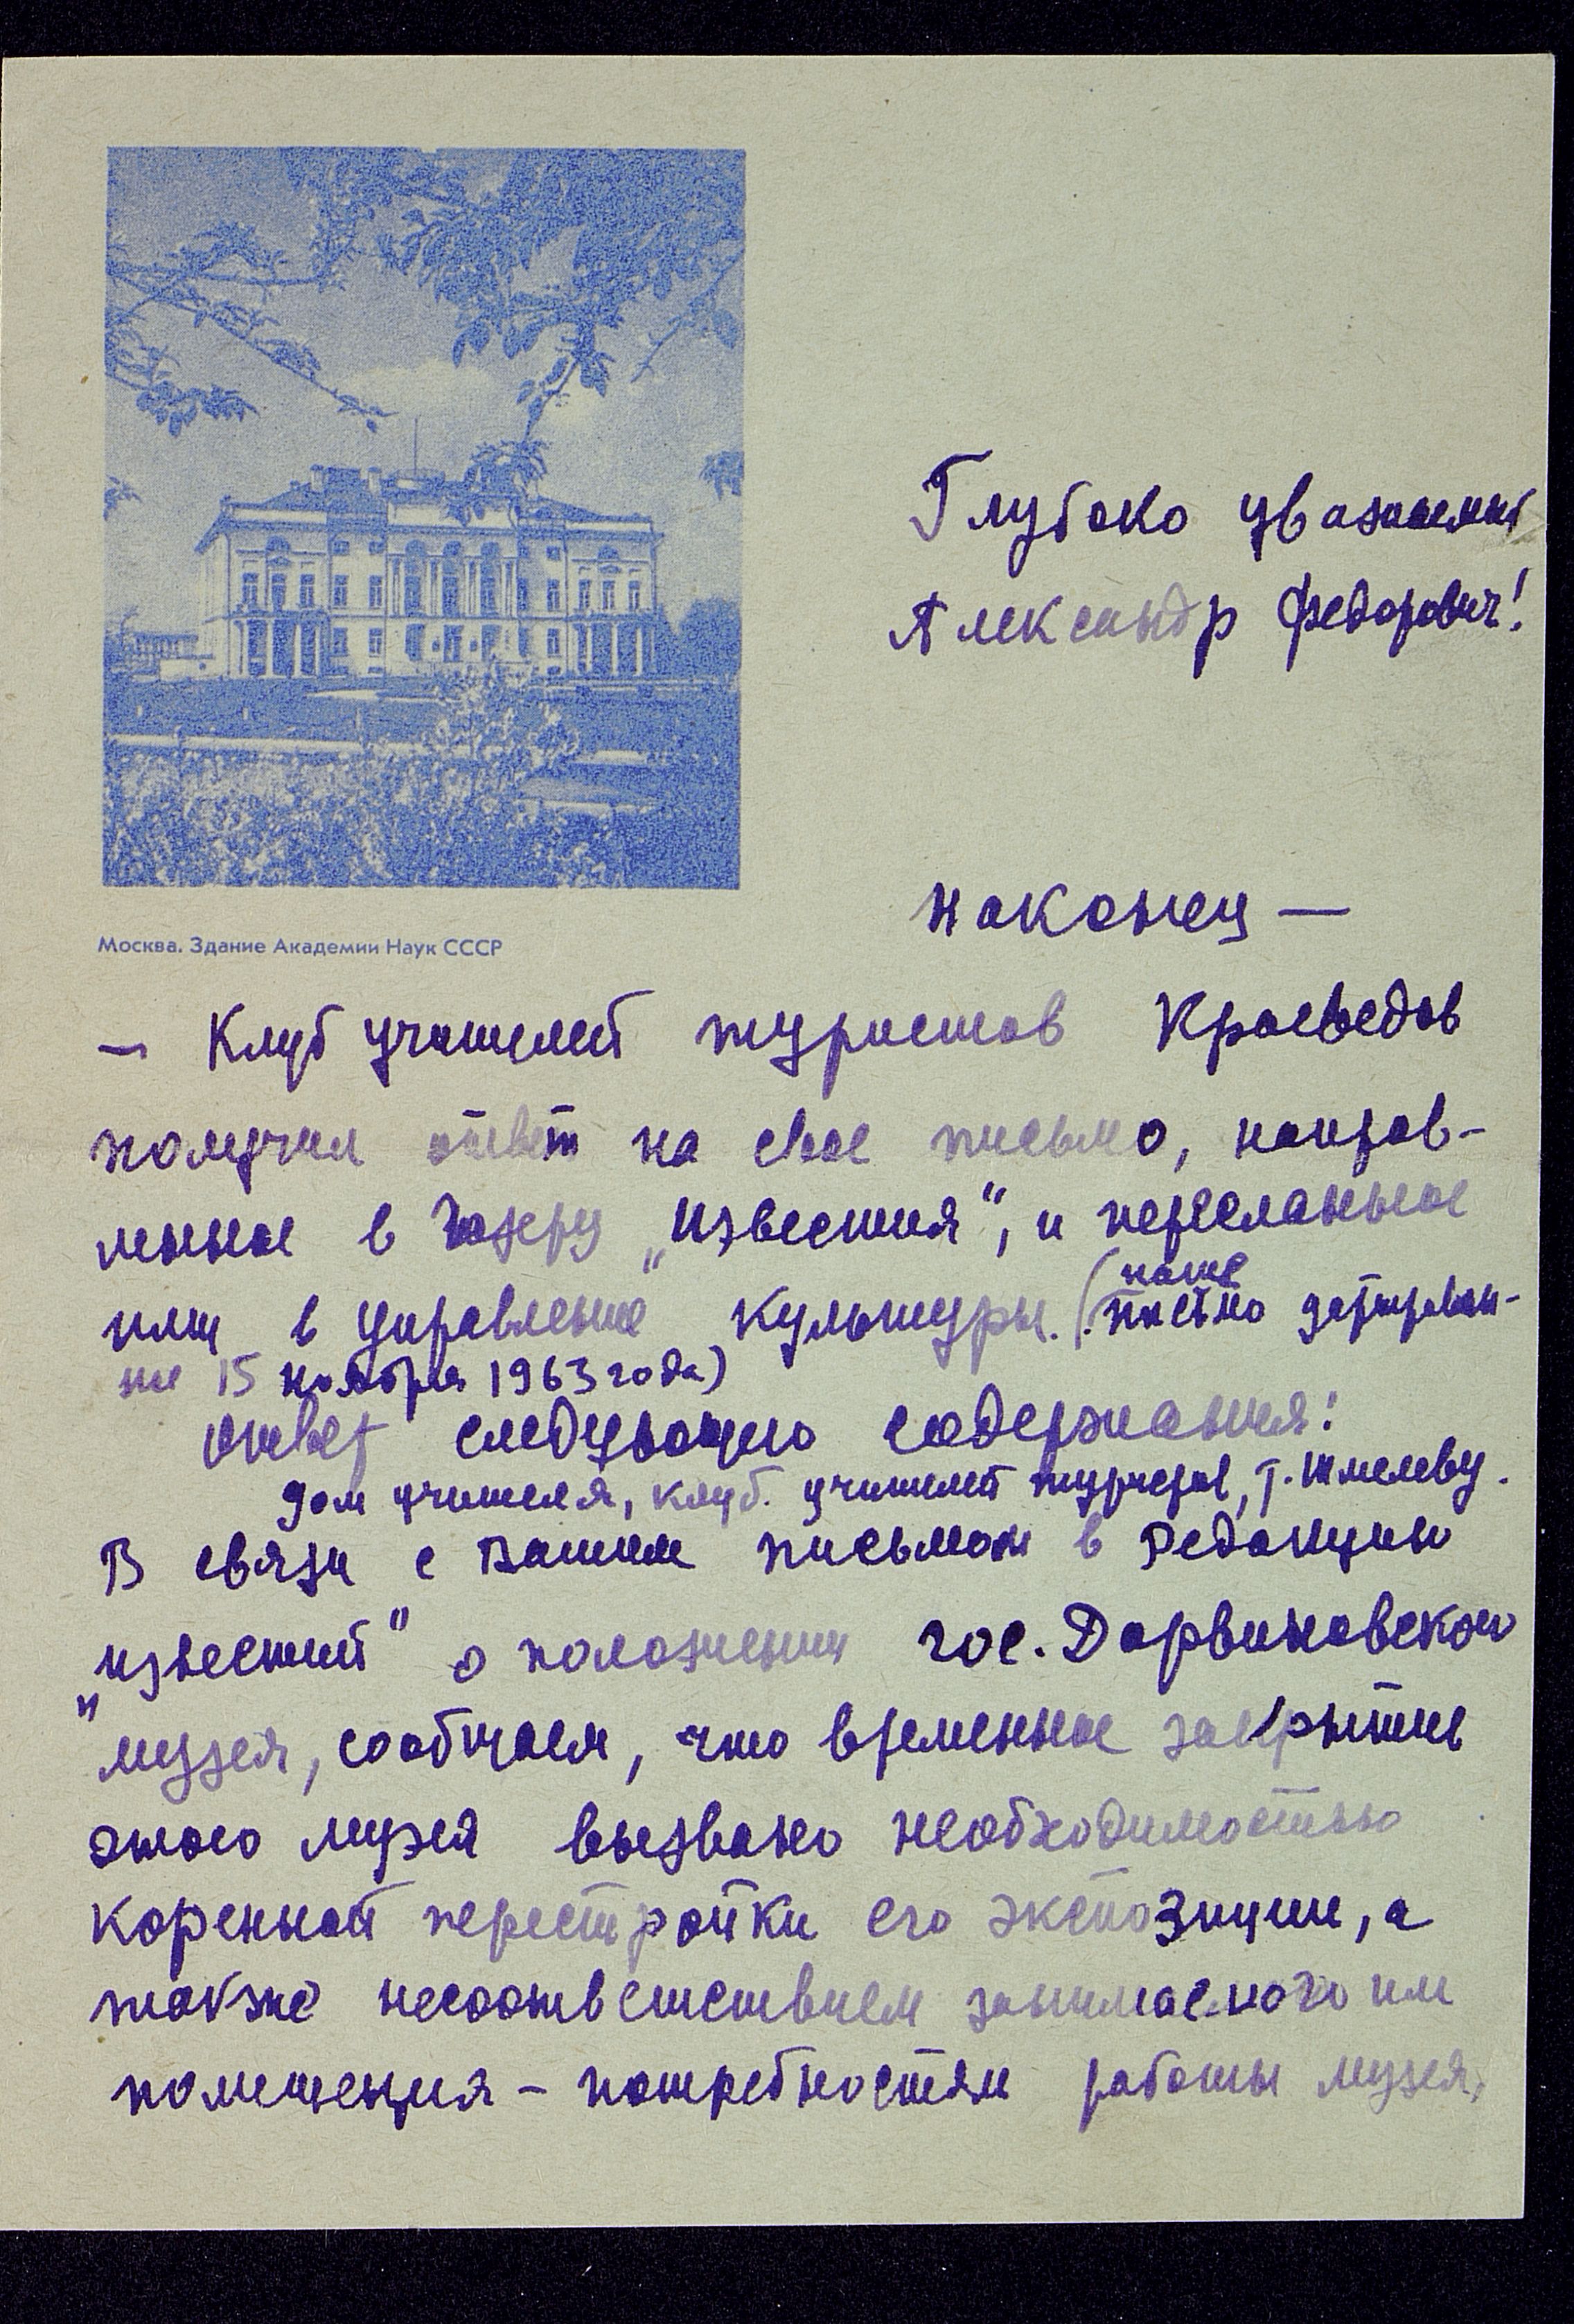 Глубоко уважаемый
Александр Федорович!
Наконец —
Москва. Здание Академии Наук СССР
— Клуб учителей туристов краеведов
получил ответ на свое письмо, направ-
ленное в газету „Известия“, и пересланное
ими в Управление культуры. (наше
письмо датирован-
ное 15 ноября 1963 года)
Ответ следующего содержания:
Дом учителя, клуб. учителей туристов, т. Шмелеву.
В связи с Вашим письмом в Редакцию
„Известий" о положении гос. Дарвиновского
музея, сообщаем, что временное закрытие
этого музея вызвано необходимостью
коренной перестройки его экспозиции, а
также несоответствием занимаемого им
помещения – потребностям работы музея,